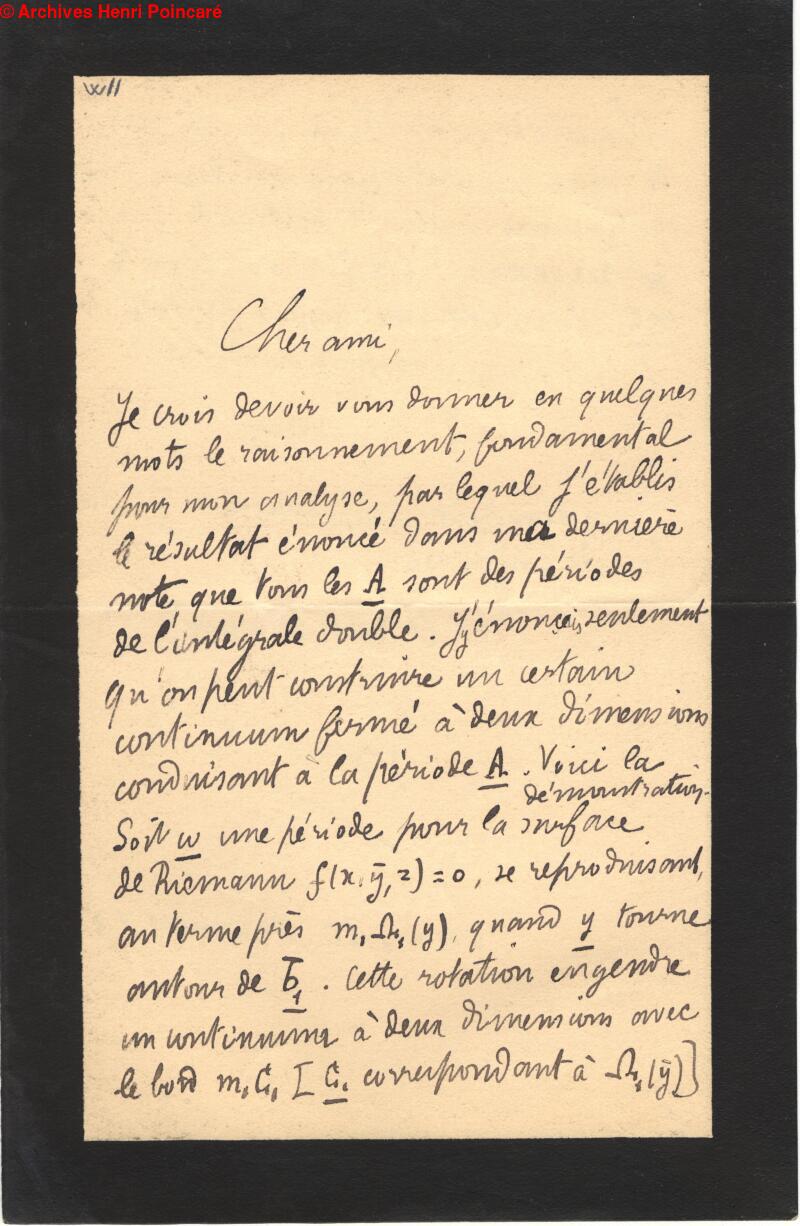 © Archives Henri Poincaré
Cher ami,
Je crois devoir vous donner en quelques
mots le raisonnement, fondamental
pour mon analyse, par lequel j'établis
le résultat énoncé dans ma dernière
note que tous les A sont des périodes
de l'intégrale double. J'y énonçais seulement
qu'on peut construire un certain
continuum fermé à deux dimensions
conduisant à la période A. Voici la
démonstration.
Soit ω une période pour la surface
de Riemann f(x, ȳ, z) = 0, se reproduisant,
au terme près m₁Ω₁(y), quand y tourne
autour de b₁. Cette rotation engendre
un continuum à deux dimensions avec
le bord m₁C₁ [C₁ correspondant à Ω₁(ȳ)]